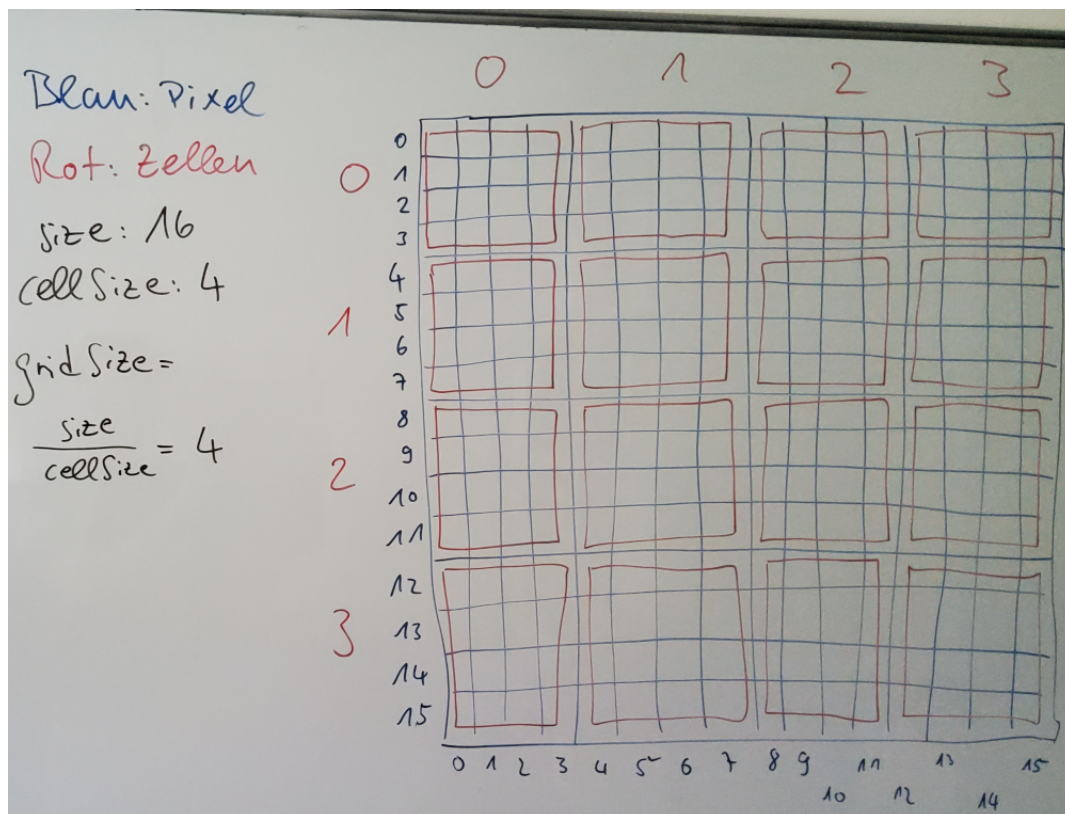 0 1 2 3
Blau: Pixel
Rot: Zellen
size: 16
cellSize: 4
gridSize =
size
cellSize = 4
0
1
2
3
0
1
2
3
4
5
6
7
8
9
10
11
12
13
14
15
0 1 2 3 4 5 6 7 8 9 11 13 15
10 12 14